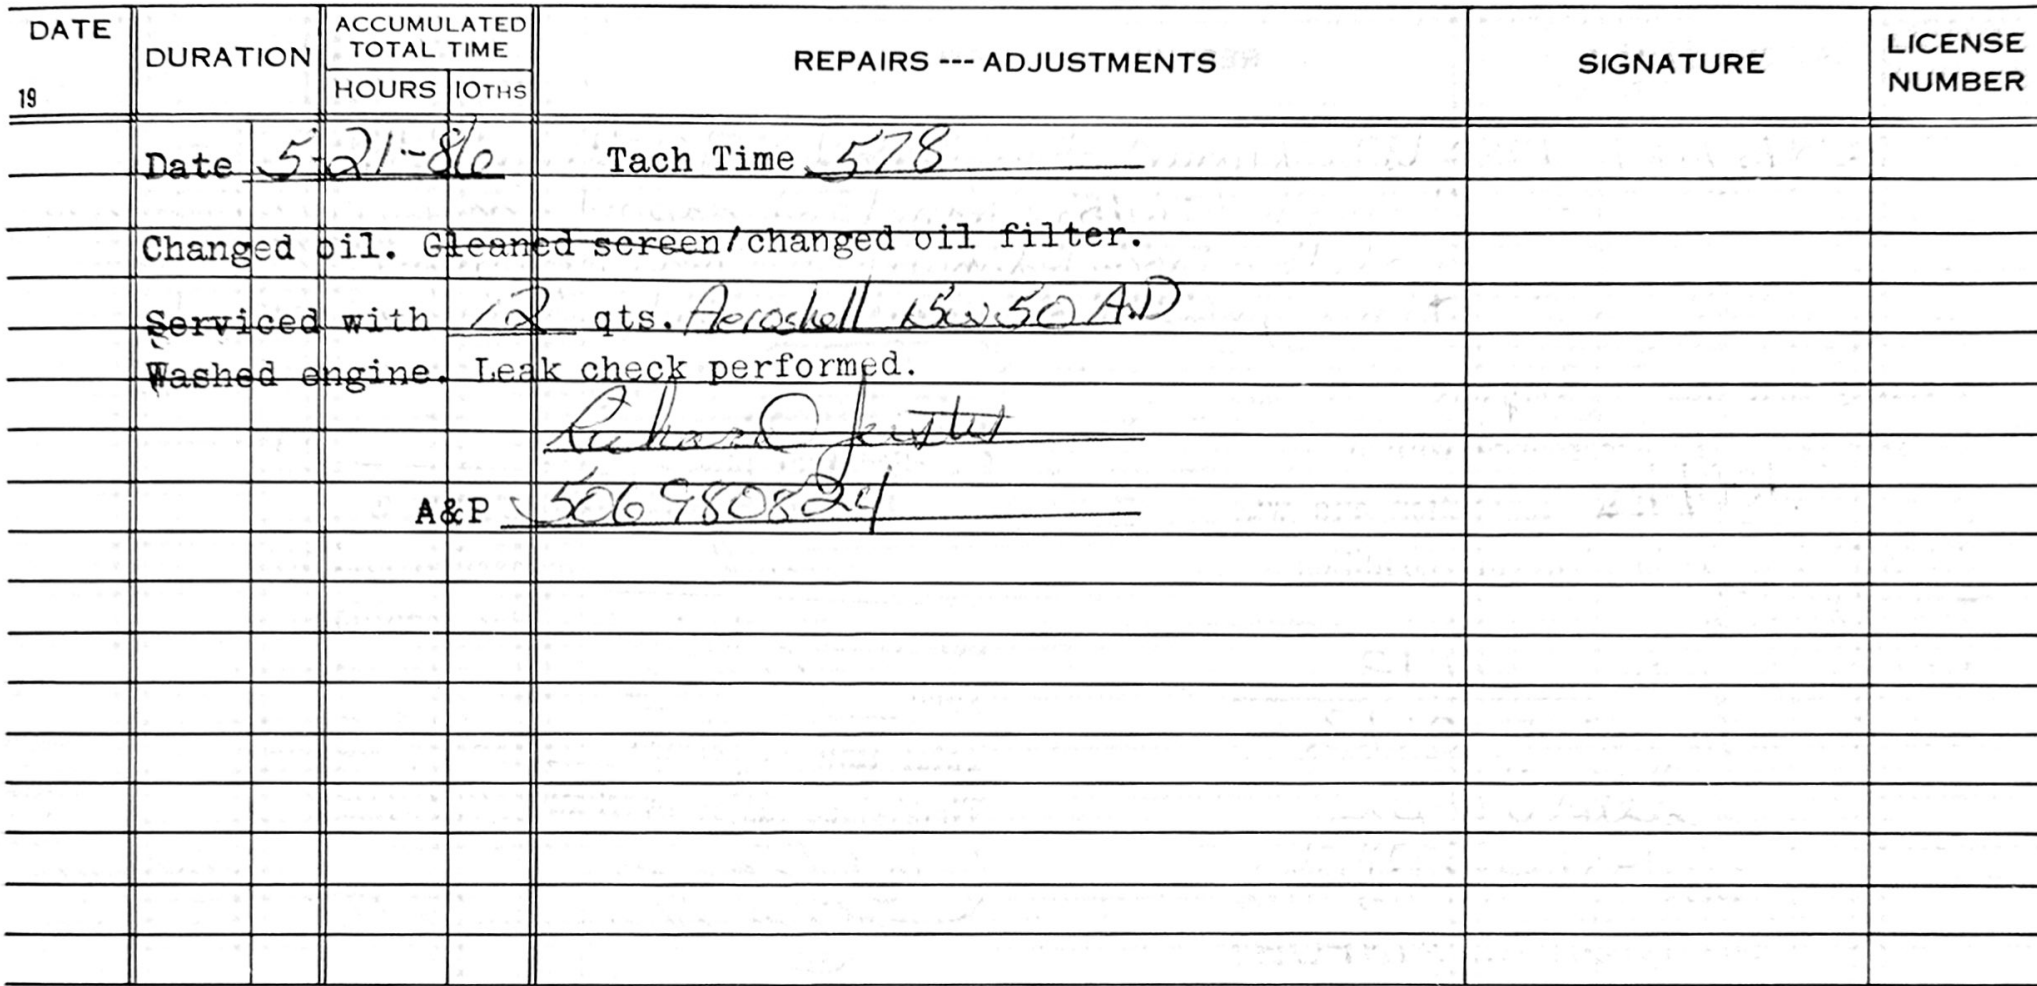 DATE
19
DURATION
ACCUMULATED
TOTAL TIME
HOURS 10THS
REPAIRS --- ADJUSTMENTS
SIGNATURE
LICENSE
NUMBER
Date 5-21-86 Tach Time 578
Changed oil. Cleaned screen/changed oil filter.
Serviced with 12 qts. Aeroshell 15w50 AD
Washed engine. Leak check performed.
Richard
A&P 506980824